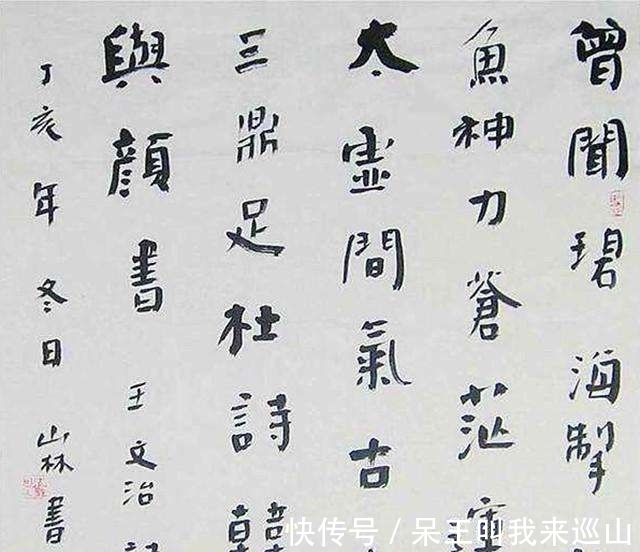 曾聞碧海掣
魚神力蒼茫
太虛間氣古
三鼎足杜詩
與顏書 王文治
丁亥年冬日 山林書
快传号 / 呆王叫我来巡山